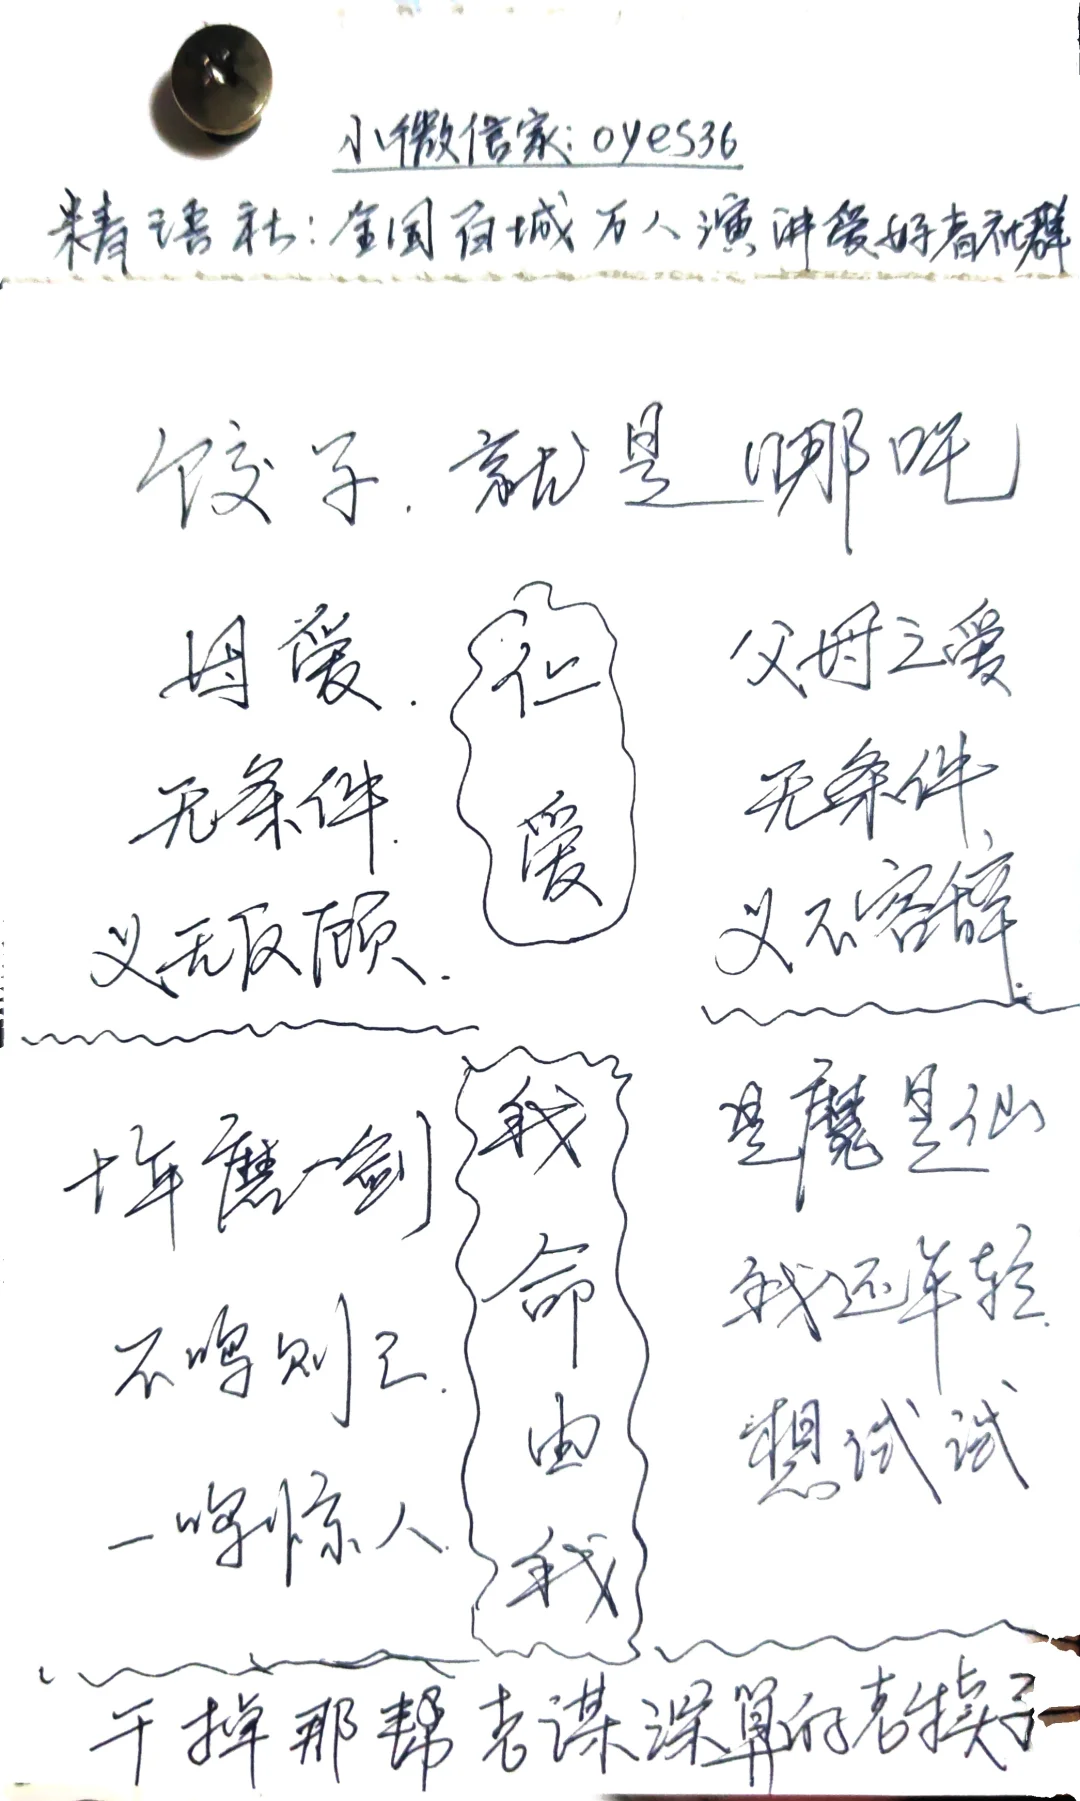 小微信家:oyes36
精语社:全国百城万人演讲爱好者社群
饺子.就是哪吒
母爱.
无条件.
义无反顾.
化
爱
父母之爱
无条件,
义不容辞.
十年磨一剑
不鸣则已.
一鸣惊人.
我
命
由
我
是魔是仙
我还年轻.
想试试
干掉那帮老谋深算的老犊子